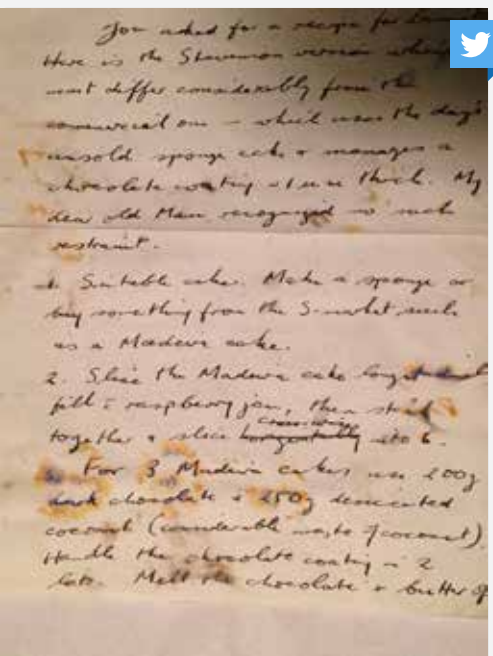 You asked for a recipe for
Here is the Stevenson version which
must differ considerably from the
commercial one – which uses the day's
unsold sponge cake + manages a
chocolate coating thick. My
dear old Mam recognized no such
restraint.
1. Suitable cake. Make a sponge or
buy something from the S-market such
as a Madeira cake.
2. Slice the Madeira cake
fill raspberry jam, then stick
crosswise
together + slice horizontally into 6.
For 3 Madeira cakes use 200g
dark chocolate + 250g desiccated
coconut (considerable waste of coconut).
Handle the chocolate coating in 2
lots. Melt the chocolate + butter